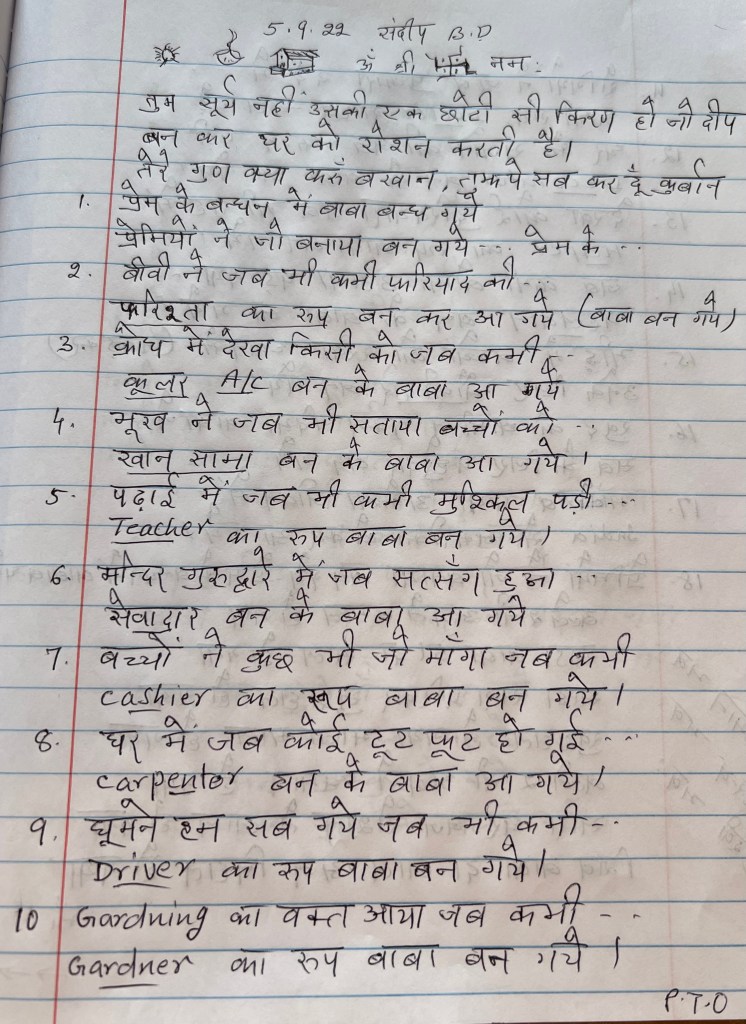 5.9.22 संदीप B.D
ॐ श्री नम:
तुम सूर्य नहीं उसकी एक छोटी सी किरण हो जो दीप
बन कर घर को रोशन करती है।
तेरे गुण क्या करुँ बखान, तुझपे सब कर दूँ कुर्बान
1. प्रेम के बन्धन में बाबा बन्ध गये
प्रेमियों ने जो बनाया बन गये --- प्रेम के --
2. बीवी ने जब भी कभी फरियाद की --
फरिश्ता का रुप बन कर आ गये (बाबा बन गये)
3. क्रोध में देखा किसी को जब कभी --
कूलर A/c बन के बाबा आ गये
4. भूख ने जब भी सताया बच्चों को --
खान सामा बन के बाबा आ गये।
5. पढ़ाई में जब भी कभी मुश्किल पड़ी ---
Teacher का रुप बाबा बन गये।
6. मन्दिर गुरुद्वारे में जब सत्सँग हुआ --
सेवादार बन के बाबा आ गये
7. बच्चों ने कुछ भी जो माँगा जब कभी
cashier का रुप बाबा बन गये।
8. घर में जब कोई टूट फूट हो गई ---
carpentor बन के बाबा आ गये।
9. घूमने हम सब गये जब भी कभी --
Driver का रुप बाबा बन गये।
10 Gardning का वक्त आया जब कभी --
Gardner का रुप बाबा बन गये।
P.T.O